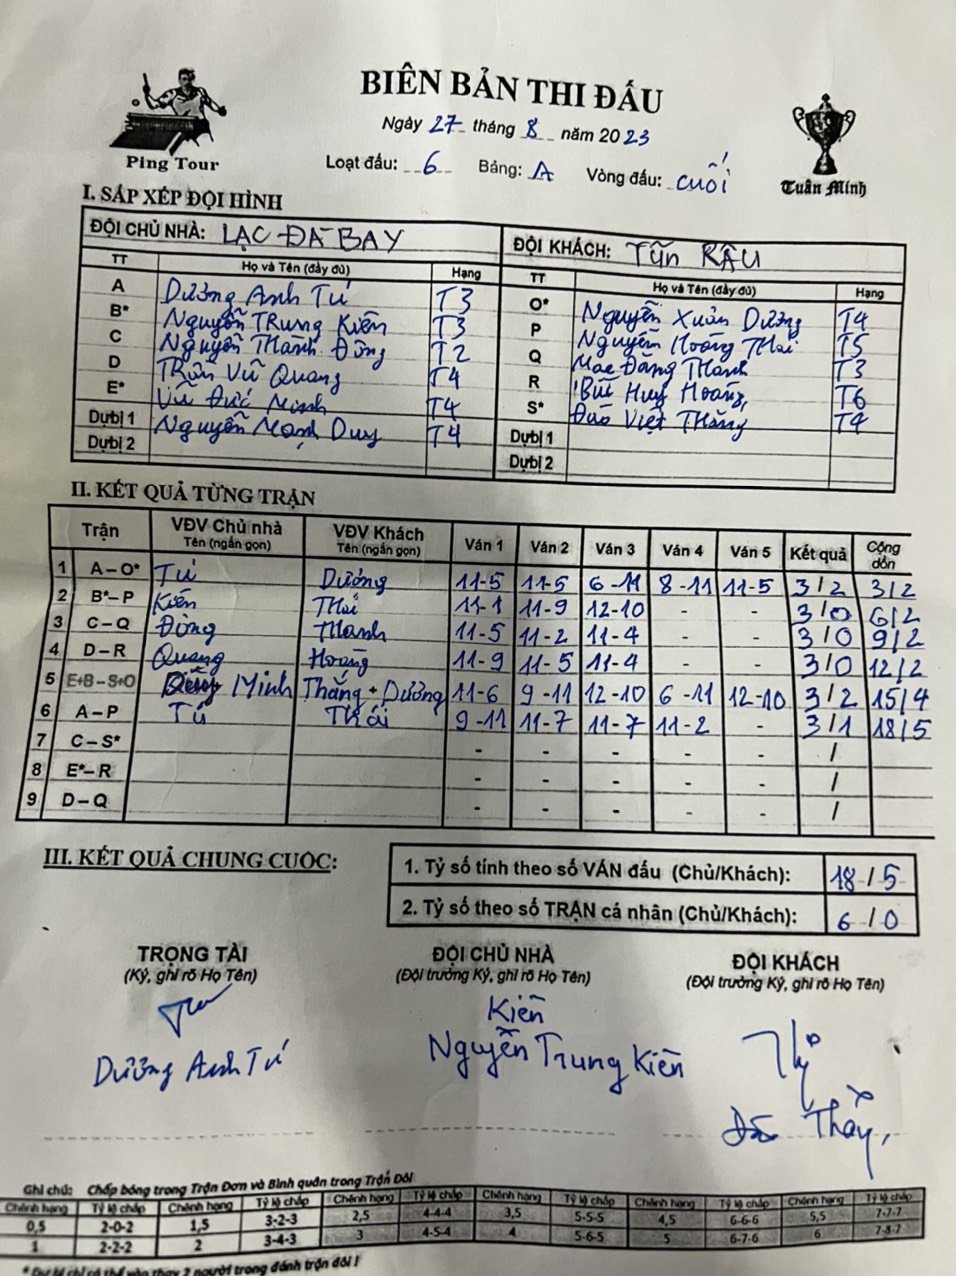 BIÊN BẢN THI ĐẤU
Ngày 27 tháng 8 năm 2023
Ping Tour
Loạt đấu: 6 Bảng: A Vòng đấu: cuối
Tuân Minh
I. SẮP XẾP ĐỘI HÌNH
ĐỘI CHỦ NHÀ: LẠC ĐÀ BAY ĐỘI KHÁCH: TỬN RÂU
TT Họ và Tên (đầy đủ) Hạng TT Họ và Tên (đầy đủ) Hạng
A Dương Anh Tú T3 O* Nguyễn Xuân Dương T4
B* Nguyễn Trung Kiên T3 P Nguyễn Hoàng Thái T5
C Nguyễn Thành Đồng T2 Q Mac Đăng Thanh T3
D Trần Vũ Quang T4 R Bùi Huy Hoàng T6
E* Vũ Đức Minh T4 S* Đào Việt Thắng T4
Dự bị 1 Nguyễn Mạnh Duy T4 Dự bị 1
Dự bị 2 Dự bị 2
II. KẾT QUẢ TỪNG TRẬN
Trận VĐV Chủ nhà Tên (ngắn gọn) VĐV Khách Tên (ngắn gọn) Ván 1 Ván 2 Ván 3 Ván 4 Ván 5 Kết quả Cộng dồn
1 A – O* Tú Dương 11-5 11-5 6-11 8-11 11-5 3/2 3/2
2 B* – P Kiên Thái 11-1 11-9 12-10 - - 3/0 6/2
3 C – Q Đồng Thanh 11-5 11-2 11-4 - - 3/0 9/2
4 D – R Quang Hoàng 11-9 11-5 11-4 - - 3/0 12/2
5 E+B – S+O Minh Thắng + Dương 11-6 9-11 12-10 6-11 12-10 3/2 15/4
6 A – P Tú Thái 9-11 11-7 11-7 11-2 - 3/1 18/5
7 C – S* - - - - - /
8 E* – R - - - - - /
9 D – Q - - - - - /
III. KẾT QUẢ CHUNG CUỘC:
1. Tỷ số tính theo số VÁN đấu (Chủ/Khách): 18/5
2. Tỷ số theo số TRẬN cá nhân (Chủ/Khách): 6/0
TRỌNG TÀI ĐỘI CHỦ NHÀ ĐỘI KHÁCH
(Ký, ghi rõ Họ Tên) (Đội trưởng Ký, ghi rõ Họ Tên) (Đội trưởng Ký, ghi rõ Họ Tên)
Kiên
Dương Anh Tú Nguyễn Trung Kiên
Ghi chú: Chấp bóng trong Trận Đơn và Bình quân trong Trận Đôi
Chênh hạng Tỷ lệ chấp Chênh hạng Tỷ lệ chấp Chênh hạng Tỷ lệ chấp Chênh hạng Tỷ lệ chấp Chênh hạng Tỷ lệ chấp Chênh hạng Tỷ lệ chấp
0,5 2-0-2 1,5 3-2-3 2,5 4-4-4 3,5 5-5-5 4,5 6-6-6 5,5 7-7-7
1 2-2-2 2 3-4-3 3 4-5-4 4 5-6-5 5 6-7-6 6 7-8-7
* Dự bị chỉ có thể vào thay 2 người trong đánh trận đôi !